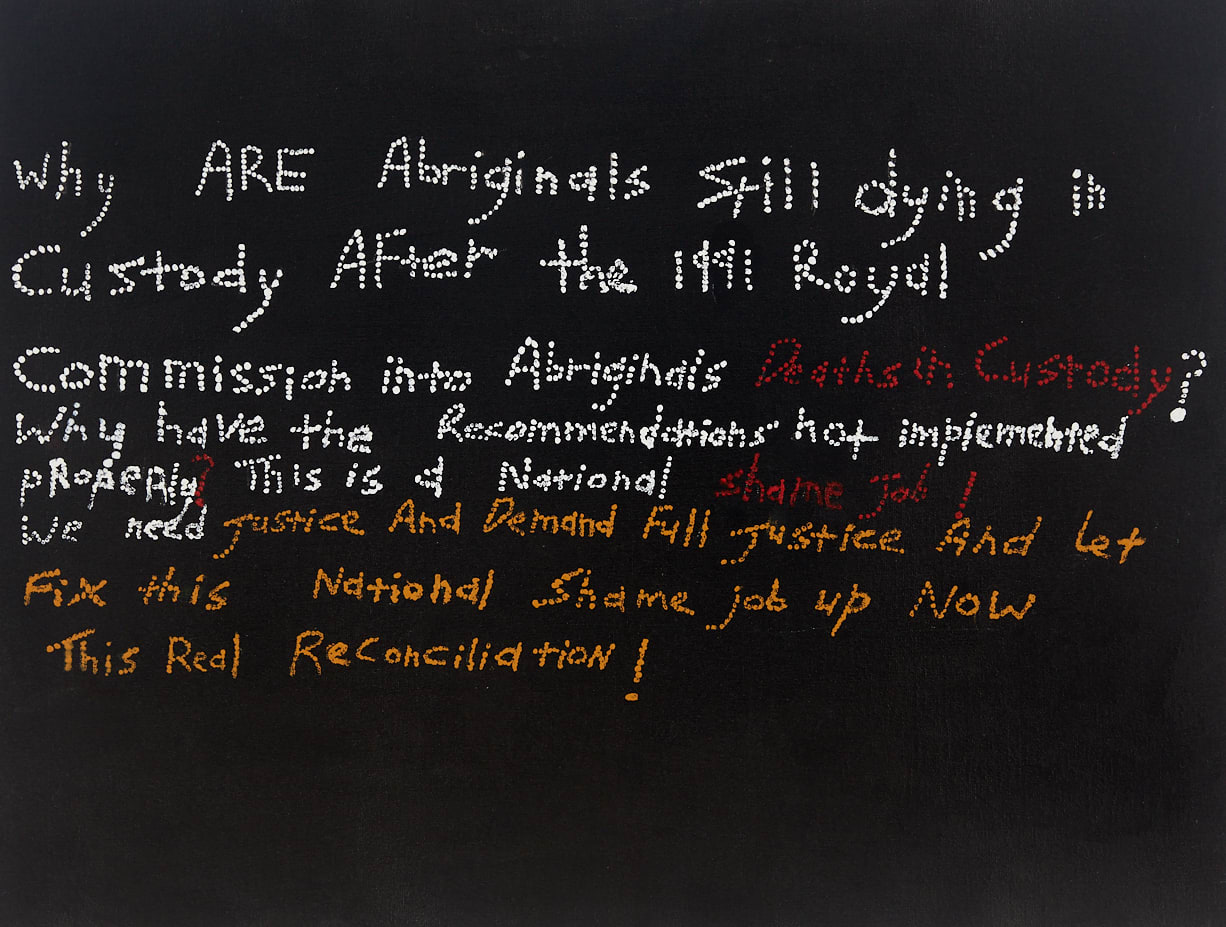 Why ARE Abriginals Still dying in
Custody AFter the 1991 Royal
Commission into Abriginals Deaths in Custody?
Why have the Recommendations not implemented
pRopeRly? This is a National shame job!
We need justice And Demand Full justice And Let
Fix this National Shame job up NOW
This Real Reconciliation!